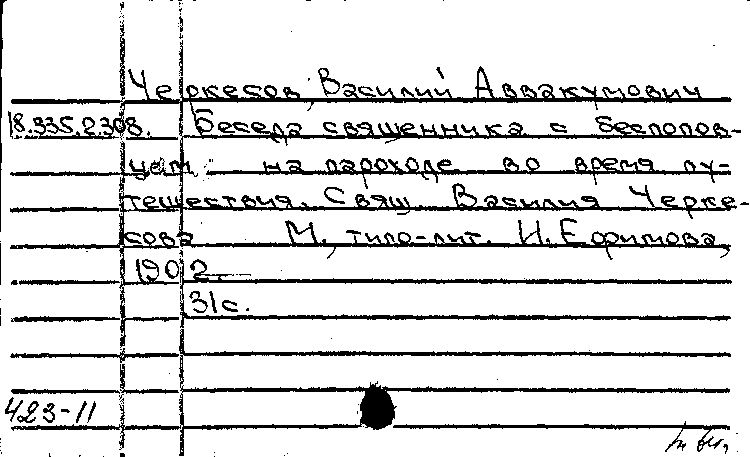 Черкесов, Василий Аввакумович
18.335.2.308. Беседа священника с беспопов-
цем на пароходе во время пу-
тешествия. Свящ. Василия Черке-
сова М., типо-лит. И. Ефимова,
1902.
31 с.
423-11